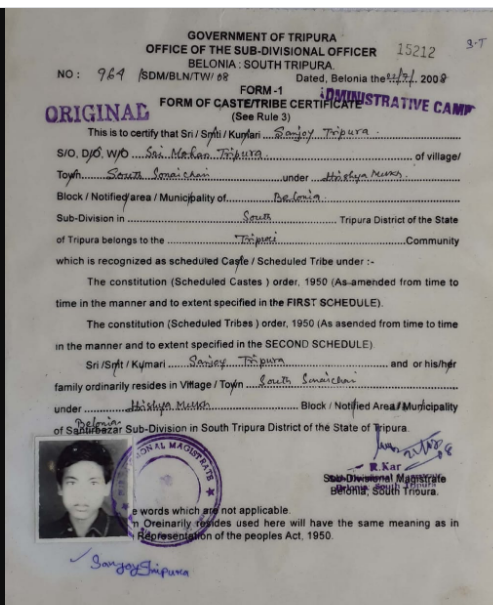 GOVERNMENT OF TRIPURA
OFFICE OF THE SUB-DIVISIONAL OFFICER 15212 3-T
BELONIA : SOUTH TRIPURA.
NO : 964 /SDM/BLN/TW/ 08 Dated, Belonia the 2008
FORM -1 ADMINISTRATIVE CAMP
ORIGINAL FORM OF CASTE/TRIBE CERTIFICATE
(See Rule 3)
This is to certify that Sri / Smti / Kumari Sanjoy Tripura
S/O, D/O, W/O Sai Mohan Tripura of village/
Town South Sonaichari under Hrishya Mukh
Block / Notified area / Municipality of Belonia
Sub-Division in South Tripura District of the State
of Tripura belongs to the Tripuri Community
which is recognized as scheduled Caste / Scheduled Tribe under :-
The constitution (Scheduled Castes ) order, 1950 (As amended from time to
time in the manner and to extent specified in the FIRST SCHEDULE).
The constitution (Scheduled Tribes ) order, 1950 (As asended from time to time
in the manner and to extent specified in the SECOND SCHEDULE)
Sri /Smt / Kymari Sanjoy Tripura and or his/her
family ordinarily resides in Village / Town South Sonaichari
under Hrishya Mukh Block / Notified Area / Municipality
Belonia
of Santirbazar Sub-Division in South Tripura District of the State of Tripura.
R.Kar
Sub-Divisional Magistrate
Belonia, South Tripura.
SIONAL MAGISTRATE
e words which are not applicable.
n Oreinarily resides used here will have the same meaning as in
Representation of the peoples Act, 1950.
Sanjoy Tripura